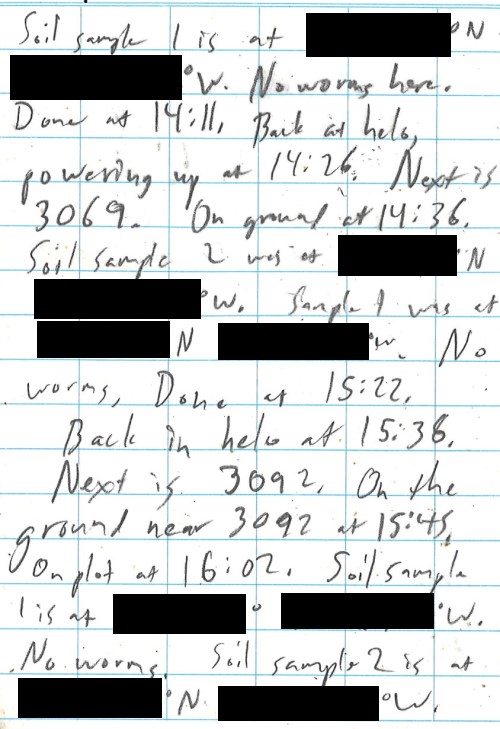 Soil sample 1 is at °N
°W. No worms here.
Done at 14:11. Back at helo,
powering up at 14:26. Next is
3069. On ground at 14:36.
Soil sample 2 was at °N
°W. Sample 1 was at
N °W. No
worms, Done at 15:22.
Back in helo at 15:36.
Next is 3092. On the
ground near 3092 at 15:45.
On plot at 16:02. Soil sample
1 is at ° °W.
No worms. Soil sample 2 is at
°N °W.